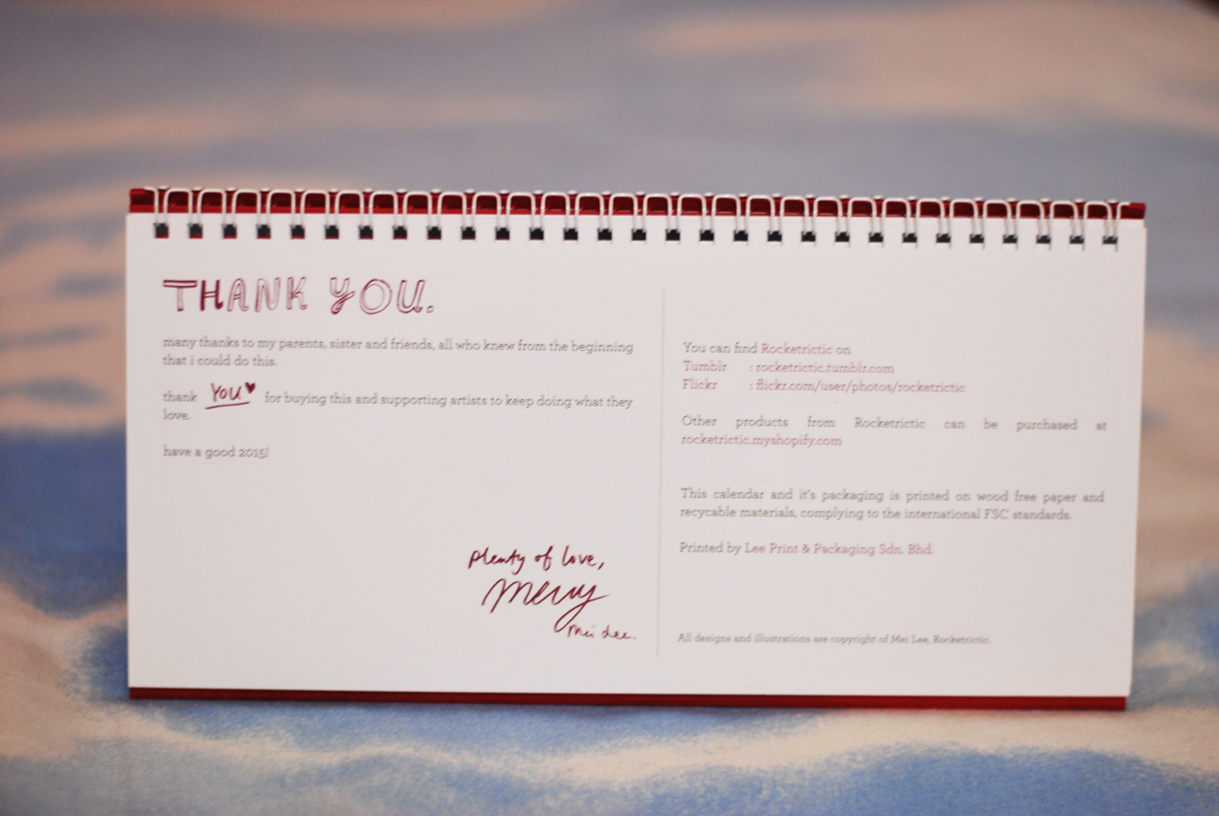 THANK YOU.
many thanks to my parents, sister and friends, all who knew from the beginning
that i could do this.
thank YOU♥ for buying this and supporting artists to keep doing what they
love.
have a good 2015!
plenty of love,
Merry
Mei Lee.
You can find Rocketrictic on
Tumblr : rocketrictic.tumblr.com
Flickr : flickr.com/user/photos/rocketrictic
Other products from Rocketrictic can be purchased at
rocketrictic.myshopify.com
This calendar and it's packaging is printed on wood free paper and
recycable materials, complying to the international FSC standards.
Printed by Lee Print & Packaging Sdn. Bhd.
All designs and illustrations are copyright of Mei Lee, Rocketrictic.